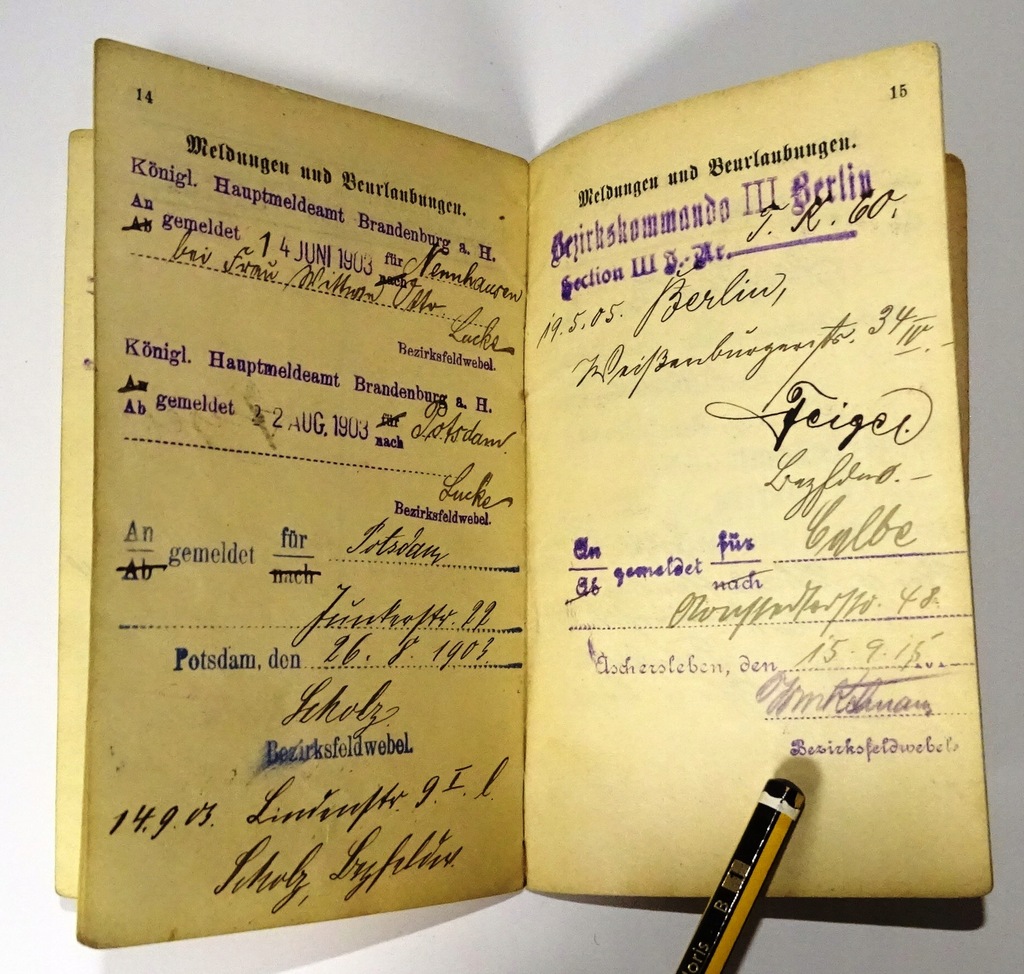 14
Meldungen und Beurlaubungen.
Königl. Hauptmeldeamt Brandenburg a. H.
An
Ab gemeldet 14 JUNI 1903 für
nach Nennhausen
bei Frau Wittwe Otto.
Lucke
Bezirksfeldwebel.
Königl. Hauptmeldeamt Brandenburg a. H.
An
Ab gemeldet 22 AUG. 1903 für
nach Potsdam
Lucke
Bezirksfeldwebel.
An
Ab gemeldet für
nach Potsdam
Junkerstr. 22
Potsdam, den 26. 8. 1903
Scholz
Bezirksfeldwebel.
14.9.03. Lindenstr. 9 I. l.
Scholz, Bezfeldw.
15
Meldungen und Beurlaubungen.
Bezirkskommando III Berlin
Section III J.-Nr. T. K. 60.
19.5.05. Berlin,
Weißenburgerstr. 34 IV.
Feigel.
An
Ab gemeldet für
nach Calbe
48.
Aschersleben, den 15.9.15
Bezirksfeldwebel
B 1